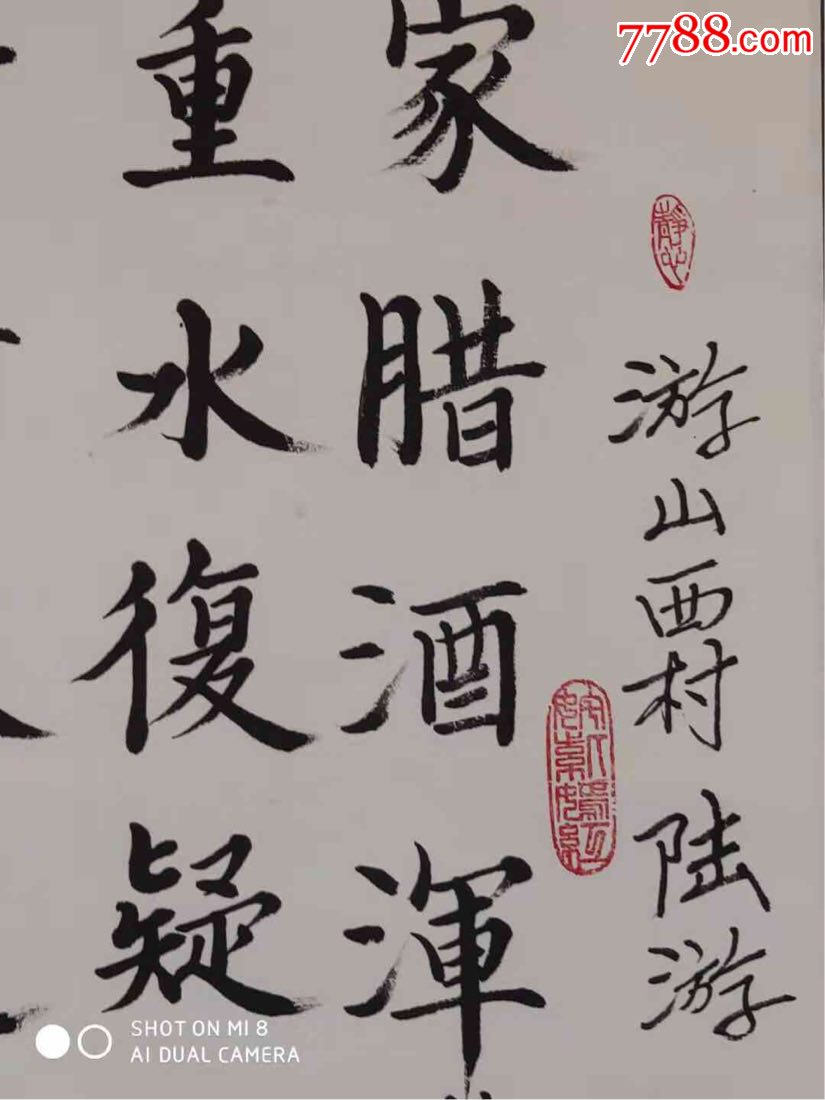 7788.com
静心
游山西村 陆游
家腊酒渾
重水復疑
SHOT ON MI 8
AI DUAL CAMERA